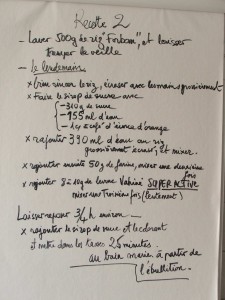 Recette 2
- Laver 500g de riz "Forban", et laisser
tremper la veille
- le lendemain
x bien rincer le riz, écraser avec les mains grossièrement
x Faire le sirop de sucre avec
- 310g de sucre
- 155 ml d'eau
- 1 c à café d'essence d'orange
x rajouter 390 ml d'eau au riz
grossièrement écrasé, et mixer.
x rajouter ensuite 50g de farine, mixer une deuxième
fois
x rajouter 8 à 10g de levure Vahiné SUPER ACTIVE
mixer une troisième fois (lentement)
Laisser reposer 3/4 h environ
x rajouter le sirop de sucre et le colorant
et mettre dans les tasses 25 minutes
au bain marie à partir de
l'ébullition.